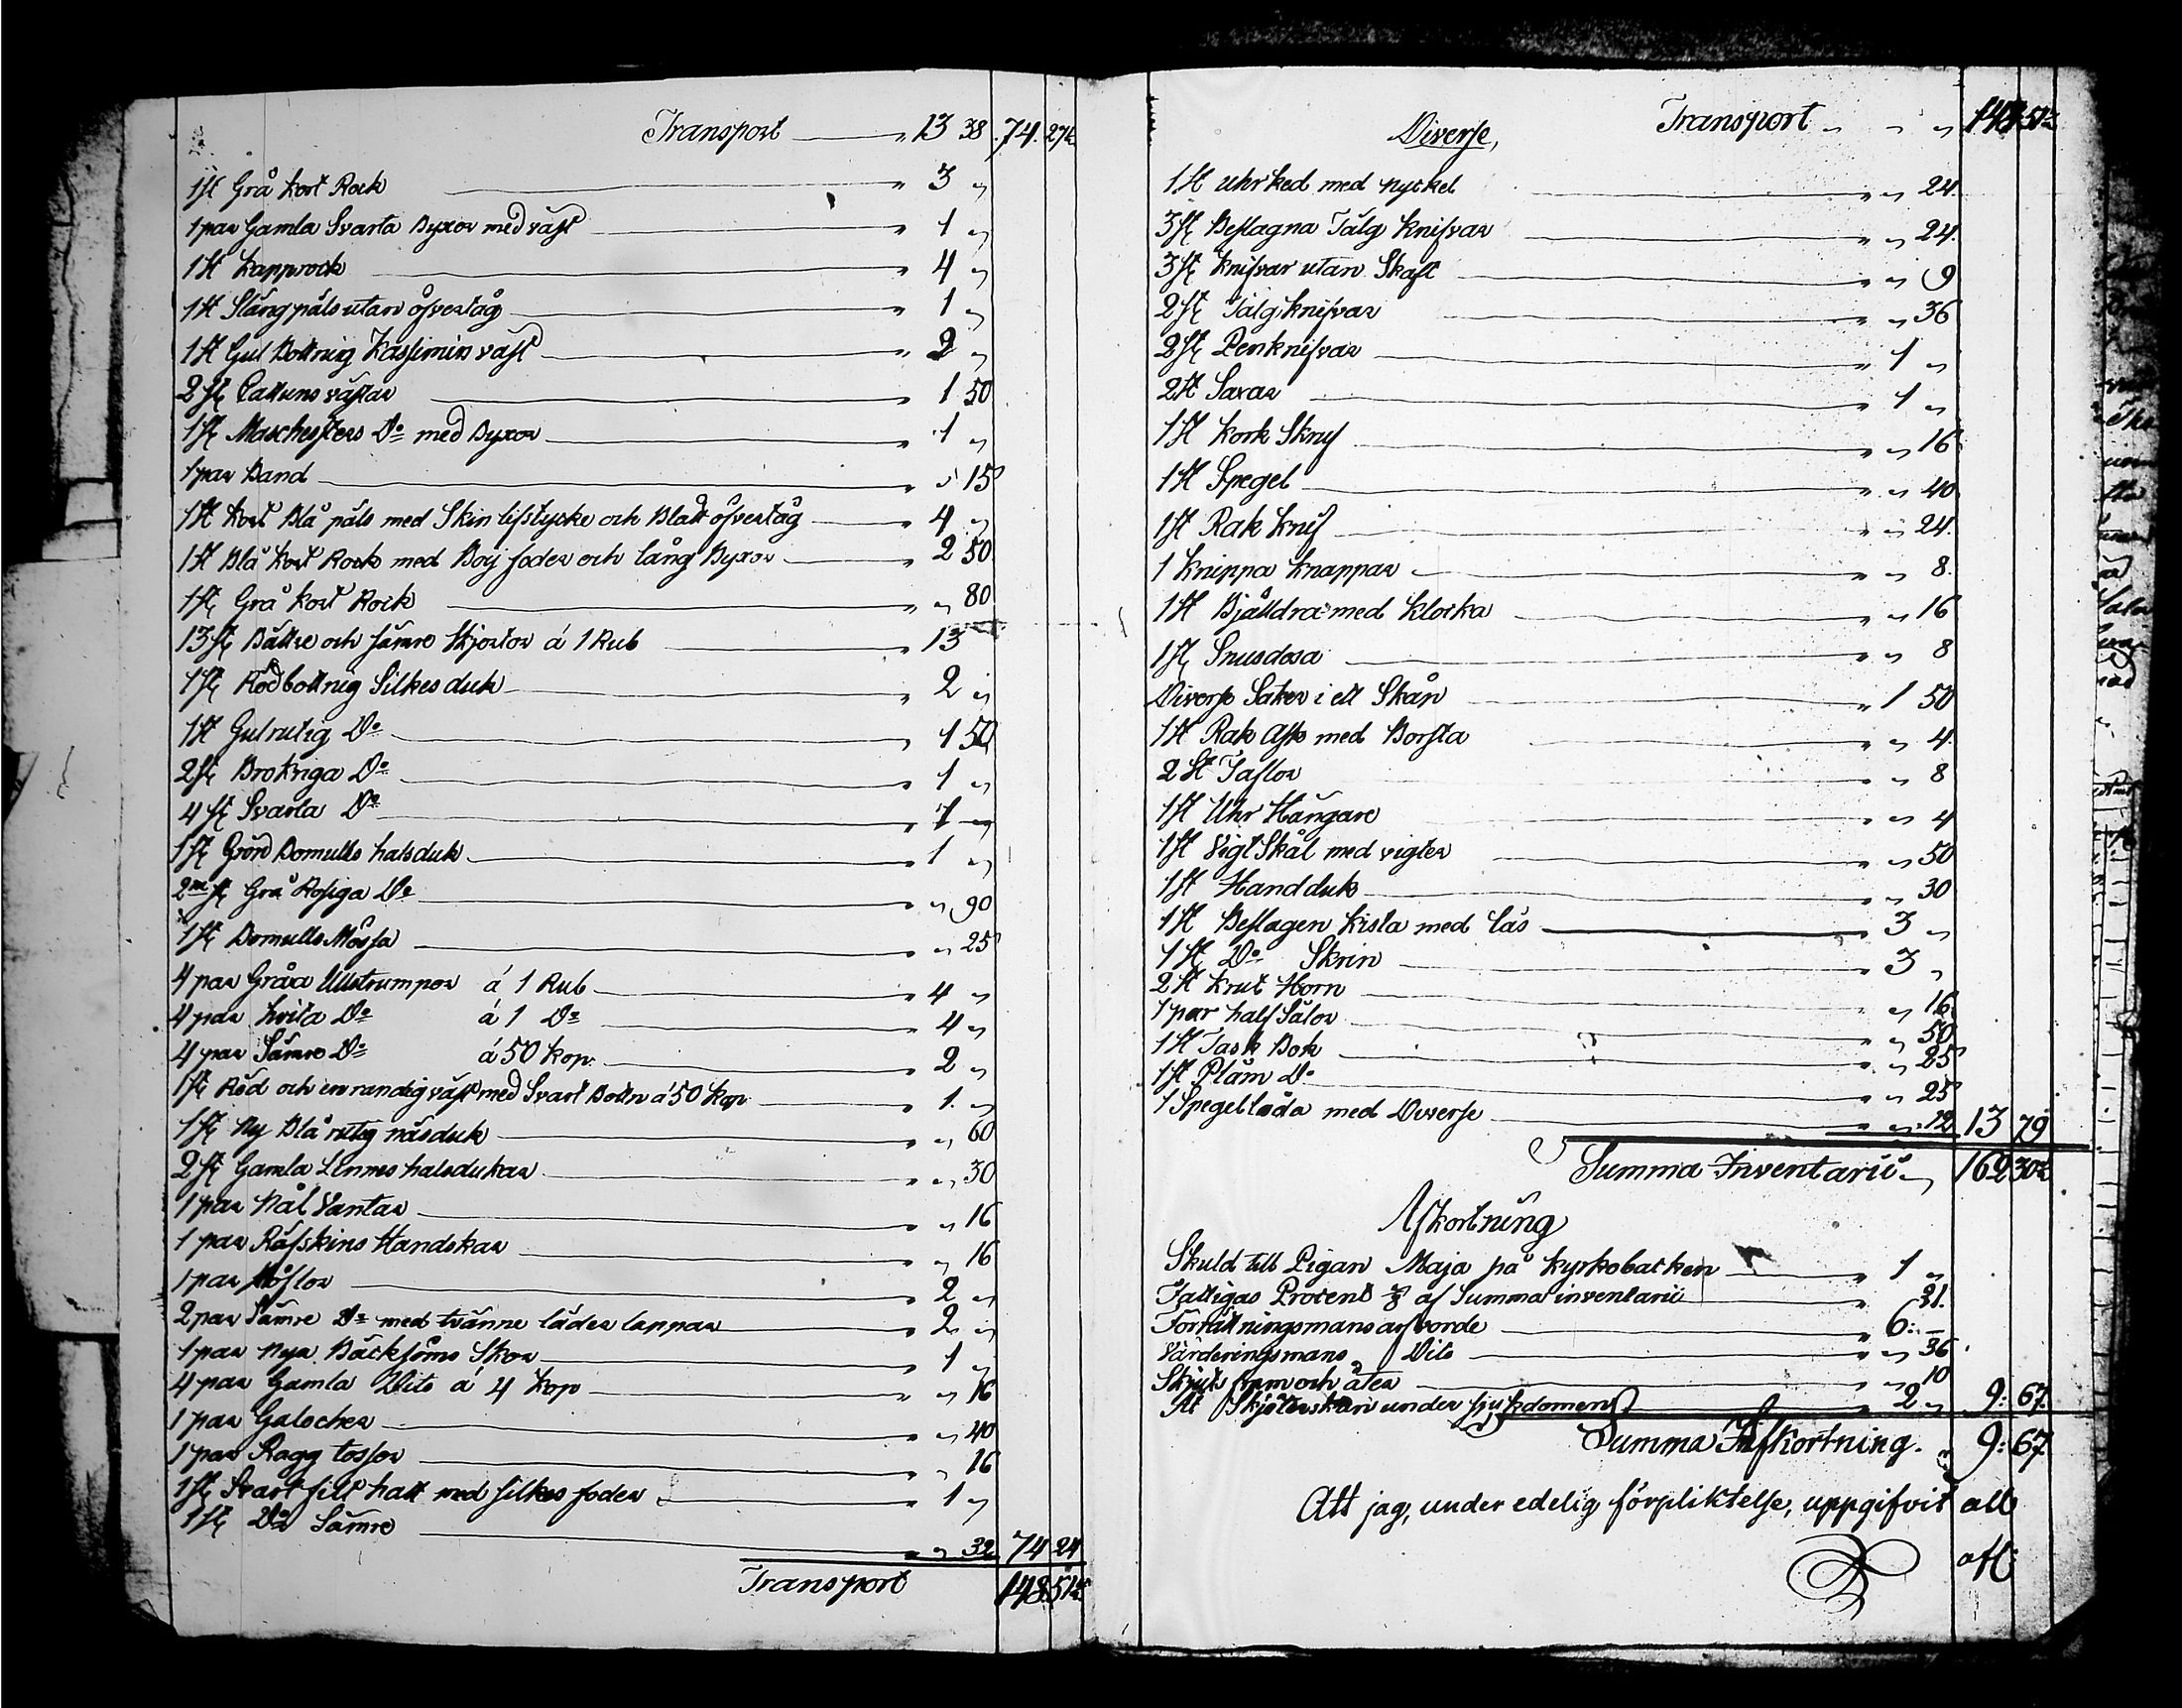 Transport " 13 38 74. 27½
1 st Grå kort Rock " 3 "
1 par Gamla Svarta Byxor med väst " 1 "
1 st Kapprock " 4 "
1 st Slängpäls utan öfvertåg " 1 "
1 st Gul Bottnig Kassimirs väst " 2 "
2 st Cattuns västar " 1 50
1 st Maschesters Do med Byxor " 1 "
1 par Band " " 15
1 st kort Blå päls med Skin lifstycke och Blått öfvertåg " 4 "
1 st Blå kort Rock med Boij foder och lång Byxor " 2 50
1 st Grå kort Rock " " 80
13 st Bättre och sämre skjortor á 1 Rub " 13
1 st Rödbottnig Silkesduk " 2 "
1 st Gulrutig Do " 1 50
2 st Brokiga Do " 1 "
4 st Svarta Do " 1 "
1 st Grön Bomulls halsduk " 1 "
2 st Grå Rosiga Do " " 90
1 st Bomulls Mössa " " 25
4 par Gråa Ullstrumpor á 1 Rub " 4 "
4 par hvita Do á 1 Do " 4 "
4 par Sämre Do á 50 kop. " 2 "
1 st Röd och en randig väst med Svart Bottn á 50 kop " 1. "
1 st Ny Blå rutig näsduk " " 60
2 st Gamla Linnes halsdukar " " 30
1 par Nål Vantar " " 16
1 par Räfskins Handskar " " 16
1 par Stöflor " 2 "
2 par Sämre Do med tvänne läder lappar " 2 "
1 par Nya Bäcksöms Skor " 1 "
4 par Gamla Dito á 4 kop " " 16
1 par Galocher " " 40
1 par Ragg tossor " " 16
1 st Svart filt hatt med silkes foder " 1 "
1 st Do Sämre " " 32 74 24
Transport 148 51½
Transport " " " 148 51½
Diverse,
1 st Uhrked med nyckel " " 24.
3 st Beslagna Tälg knifvar " " 24.
3 st knifvar utan Skaft " " 9
2 st Tälg knifvar " " 36
2 st Penknifvar " 1 "
2 st Saxar " 1 "
1 st Kork Skruf " " 16
1 st Spegel " " 40
1 st Rak Knif " " 24.
1 Knippa Knappar " " 8.
1 st Bjälldra med klocka " " 16
1 st Snusdosa " " 8
Diverse Saker i ett Skån " 1 50
1 st Rak Ask med Borsta " " 4.
2 st Taflor " " 8
1 st Uhr Hängare " " 4
1 st Vigt Skål med vigter " " 50
1 st Handduk " " 30
1 st Beslagen kista med lås " 3 "
1 st Do Skrin " 3 "
2 st Krut Horn " " 16
1 par half Sålor " " 50
1 st Task Bok " " 25
1 st Plåm Do " " 25
1 Spegellåda med Diverse " " 12 13 79
Summa Inventarii " 162 30½
Afkortning
Skuld till Pigan Maja på Kyrkobacken " 1 "
Fattigas Procent ⅛ af Summa inventarii " 21.
Förrättningsmans arfvorde " 6: —
Värderingsmans Dito " " 36
Skjuts fram och åter " " 10
At Skjöterskan under sjukdomen " 2 " 9: 67.
Summa Afkortning. 9: 67.
Att jag, under edelig förpliktelse, uppgifvit allt